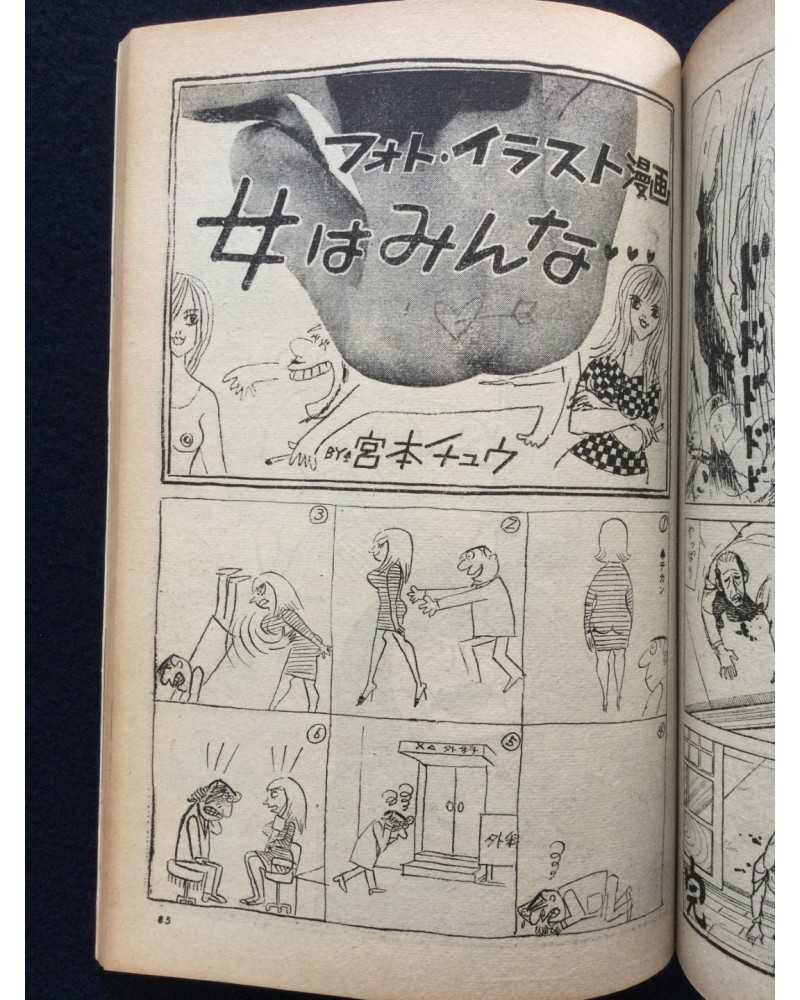 フォト・イラスト漫画
女はみんな…
BY 宮本チュウ
①
♠チカン
②
③
④
⑤
XΔ 外科
外科
⑥
85
ドドドドド
やっぱり